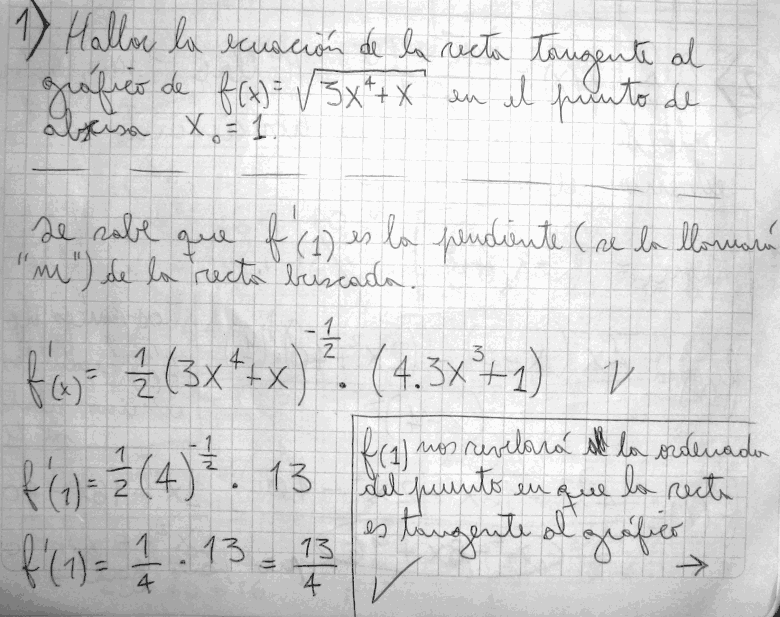 1) Hallar la ecuación de la recta tangente al
gráfico de f(x) = √(3x⁴+x) en el punto de
abscisa x₀ = 1.
Se sabe que f'(1) es la pendiente (se la llamará
"m") de la recta buscada.
f'(x) = 1/2 (3x⁴+x)^(-1/2) . (4.3x³+1)
f'(1) = 1/2 (4)^(-1/2) . 13
f'(1) = 1/4 . 13 = 13/4
f(1) nos revelará la ordenada
del punto en que la recta
es tangente al gráfico
→